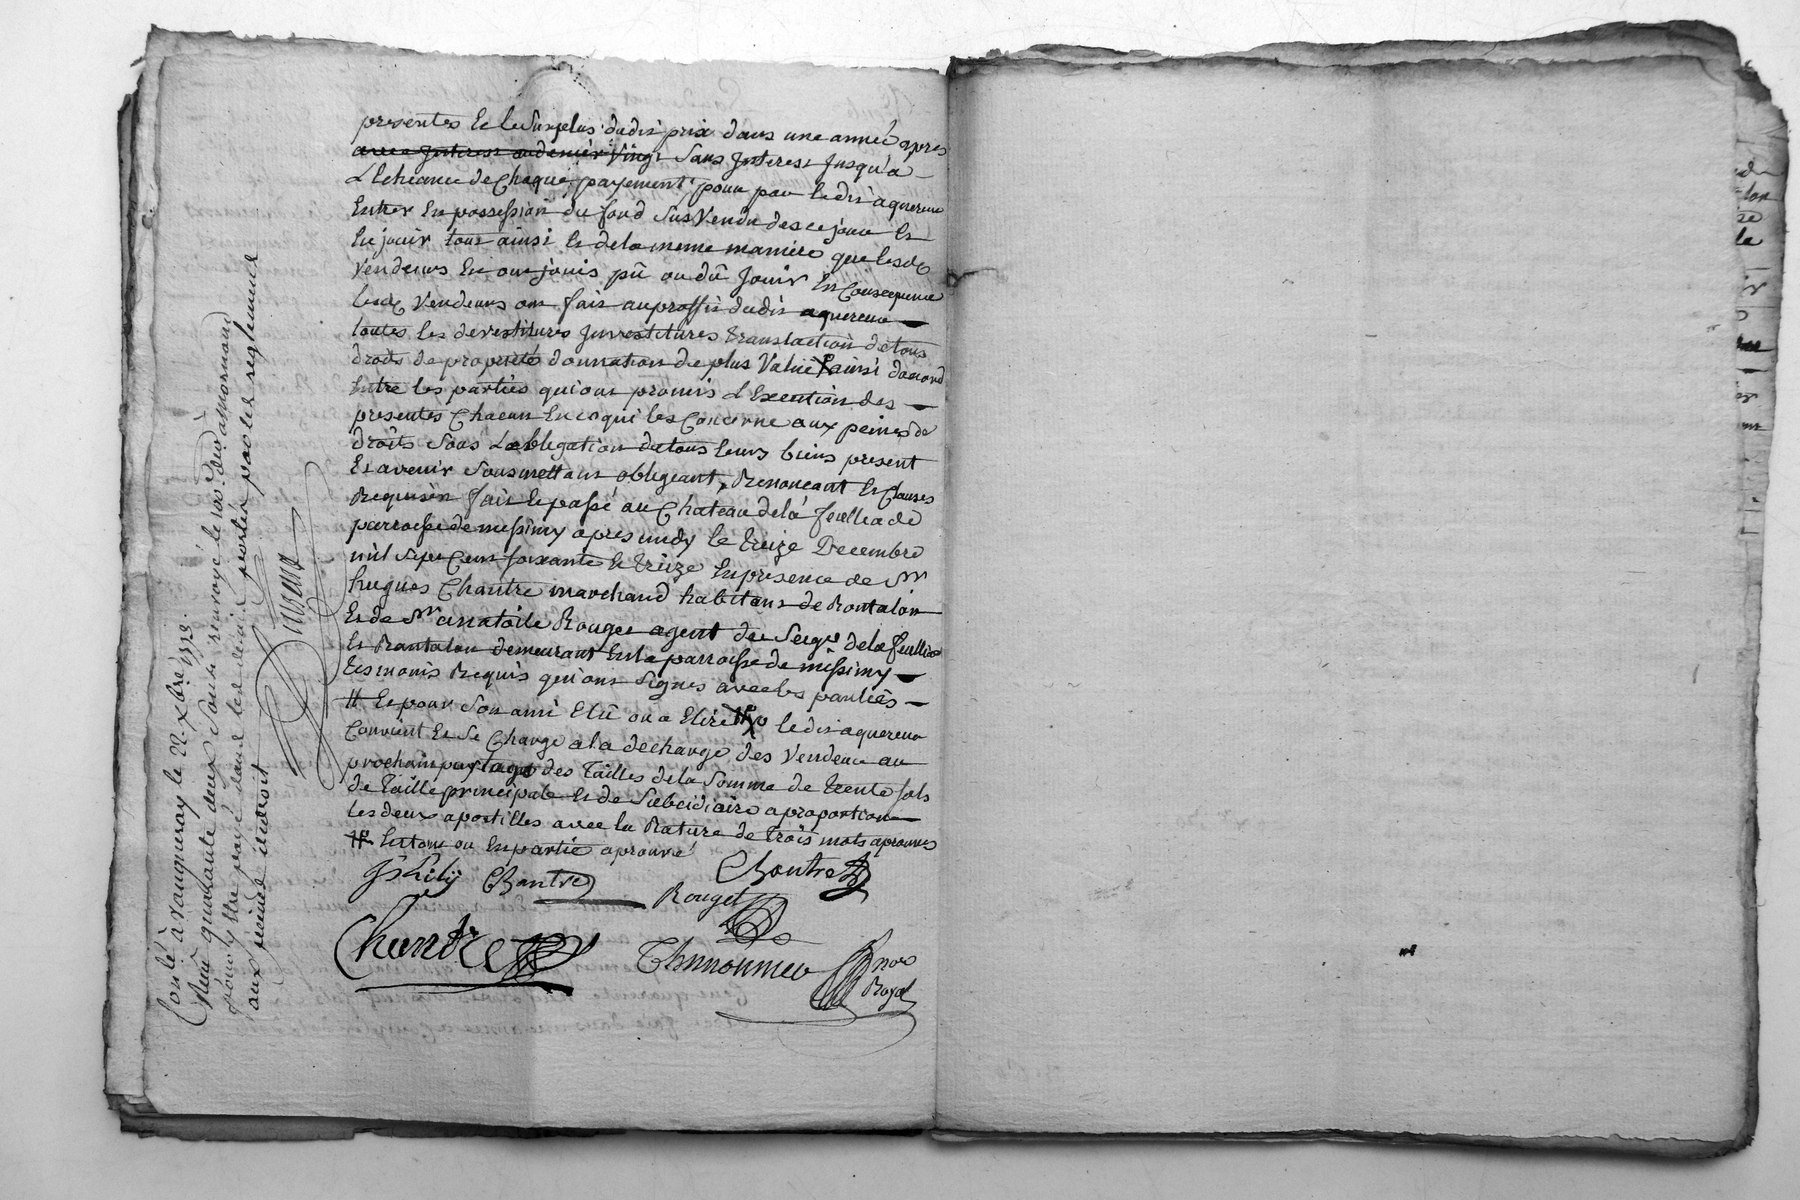 presentes Et le Surplus dudit prix dans une année apres
avec Interest au denier Vingt Sans Interest Jusqu'a
L'Echeance de Chaque payement, pour par ledit aquereur
Entrer En possession du fond Sus Vendu des ce jour Et
En jouir tout ainsi Et de la meme maniere que lesd
Vendeurs En ont jouis pû ou dû Jouir En Consequence
lesd Vendeurs ont fait au proffit dudit aquereur
toutes les devestitures Investitures translaction de tous
droits de proprieté donnation de plus Value ainsi dacord
Entre les parties qui ont promis L'Execution des
presentes Chacun En ce qui les Concerne aux peines de
droits Sous L'obligation de tous leurs biens present
Et avenir Soumettant obligeant, Renoncant Et Clauses
Requises fait Et passé au Chateau de la feuillade
parroisse de messimy apres midy le treize Decembre
mil Sept Cent Soixante Et treize En presence de Sr
hugues Chantre marchand habitant de Rontalon
Et de Sr anatoile Rouget agent du Seigr de la feuillade
Et Rontalon demeurant En la parroisse de messimy
tesmoins Requis qui ont Signes avec les parties
# Et pour Son ami Elû ou a Elire # ledit aquereur
Convient Et Se Charge a la decharge des Vendeur au
prochain partage des Tailles de la Somme de trente Sols
de Taille principale Et de Subcidiaire a proportion
les deux apostilles avec la Rature de trois mots aprouves
# En tout ou En partie aprouvé
Chantre
Chantre
Rouget
Chantre
Thimonnier
nore
Royal
Conlé à vaugneray le 22 xbre 1773.
Reçu quarante deux Sols renvoyé le 100e. denier a mornand
pour y Etre payé dans les delais portés par les reglements
aux peines endroit